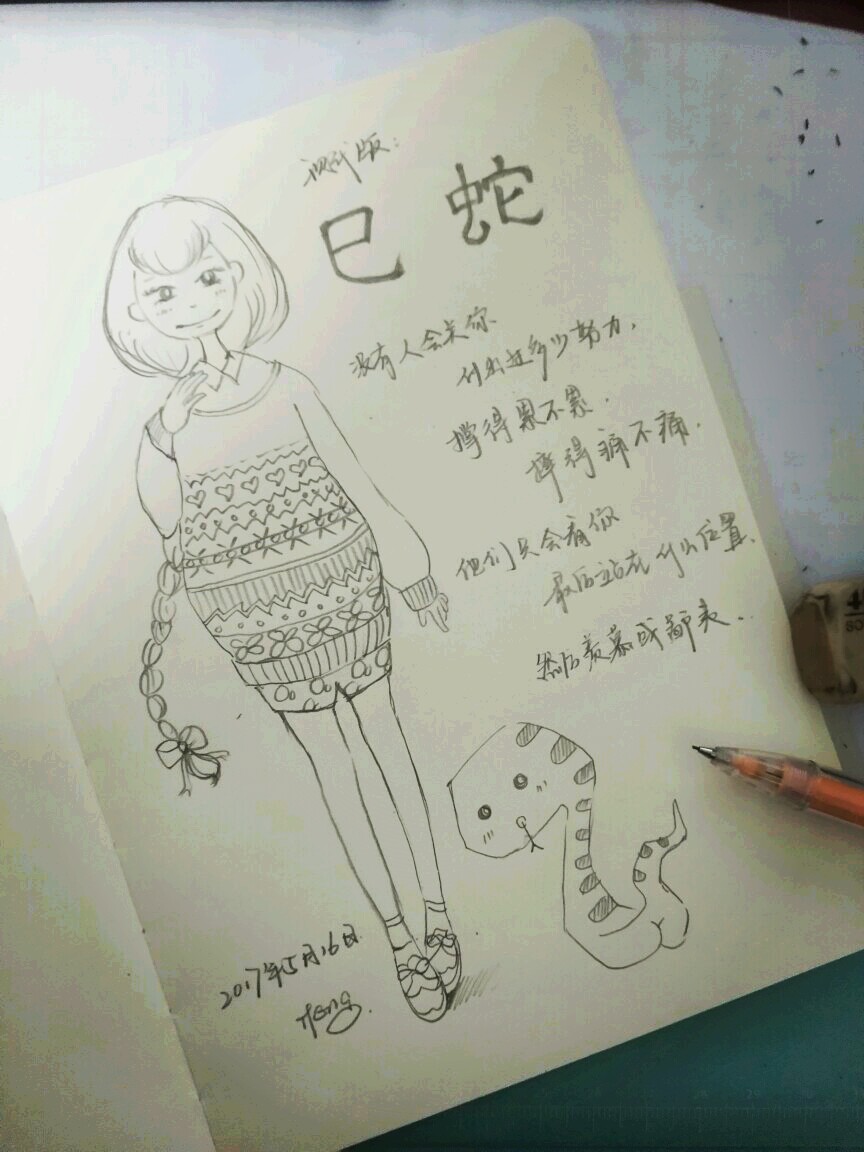 测试版：
巳 蛇
没有人会关你
付出过多少努力，
撑得累不累．
摔得痛不痛．
他们只会看你
最后站在什么位置．
然后羡慕或鄙夷．．
2017年5月16日
Heng